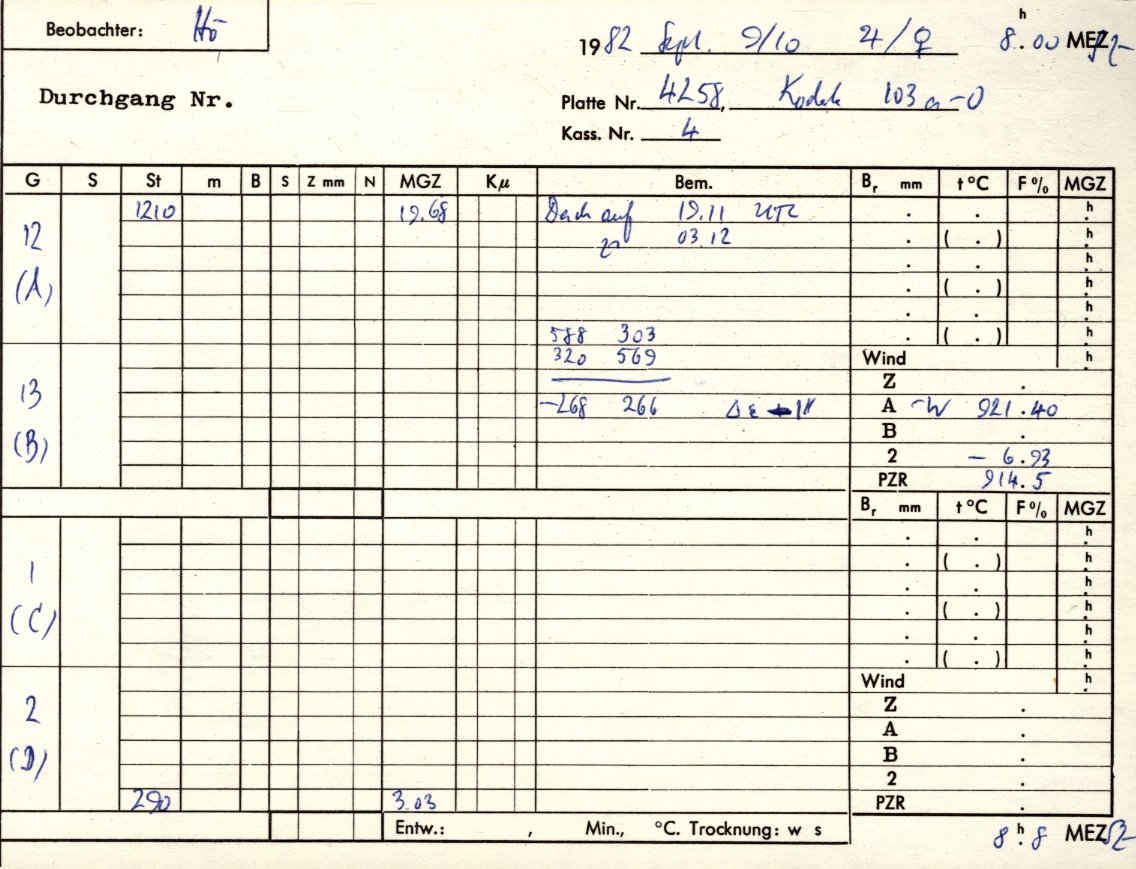 Beobachter: Hö
1982 Sept. 9/10 ♃/♀ 8.h00 MEZ
Durchgang Nr.
Platte Nr. 4258, Kodak 103 a-O
Kass. Nr. 4
G S St m B S Z mm N MGZ Kμ Bem. Br mm t °C F % MGZ
1210 19.68 Dach auf 19.11 UTC . . h.
12 zu 03.12 . ( . ) h.
. . h.
(A) . ( . ) h.
. . h.
588 303 . ( . ) h.
320 569 Wind h.
13 Z .
-268 266 A 921.40
(B) B .
2 - 6.93
PZR 914.5
Br mm t °C F % MGZ
. . h.
1 . ( . ) h.
. . h.
(C) . ( . ) h.
. . h.
. ( . ) h.
Wind h.
2 Z .
A .
(D) B .
2 .
290 3.03 PZR .
Entw.: , Min., °C. Trocknung: w s
8.h8 MEZ